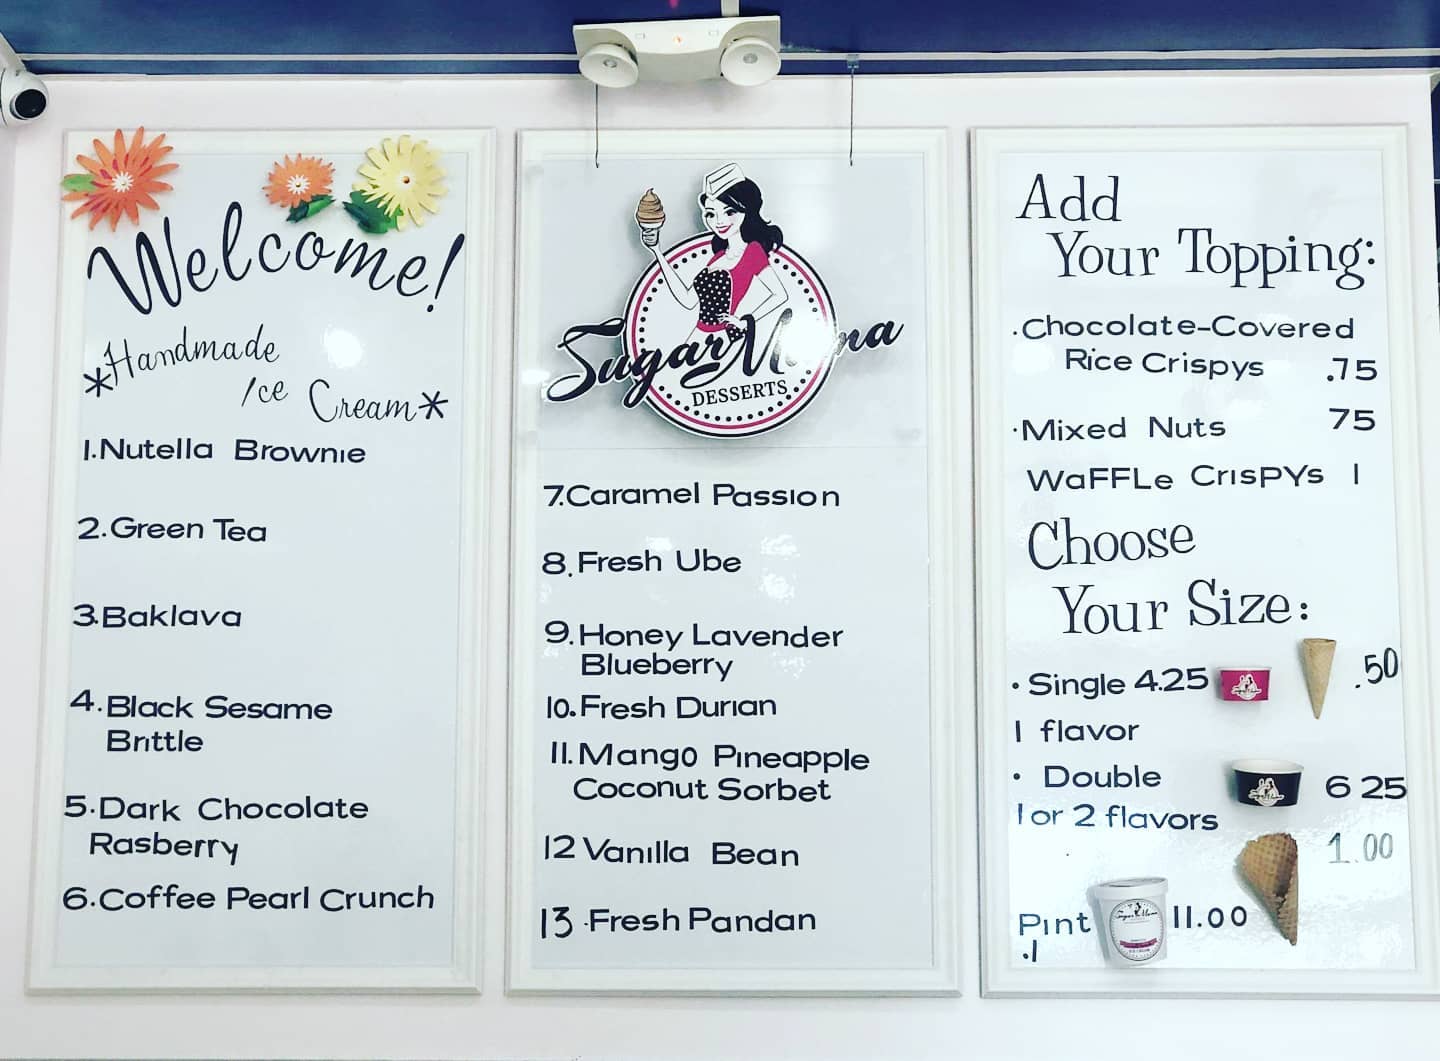 Welcome!
*Handmade
Ice
Cream*
1.Nutella Brownie
2.Green Tea
3.Baklava
4.Black Sesame
Brittle
5.Dark Chocolate
Rasberry
6.Coffee Pearl Crunch
Sugar Mama
DESSERTS
7.Caramel Passion
8.Fresh Ube
9.Honey Lavender
Blueberry
10.Fresh Durian
11.Mango Pineapple
Coconut Sorbet
12 Vanilla Bean
13.Fresh Pandan
Add
Your Topping:
.Chocolate-Covered
Rice Crispys .75
.Mixed Nuts 75
WaFFLe CrisPYs 1
Choose
Your Size:
• Single 4.25 .50
1 flavor
• Double 6 25
1 or 2 flavors
1.00
Pint 11.00
.1
Sugar Mama